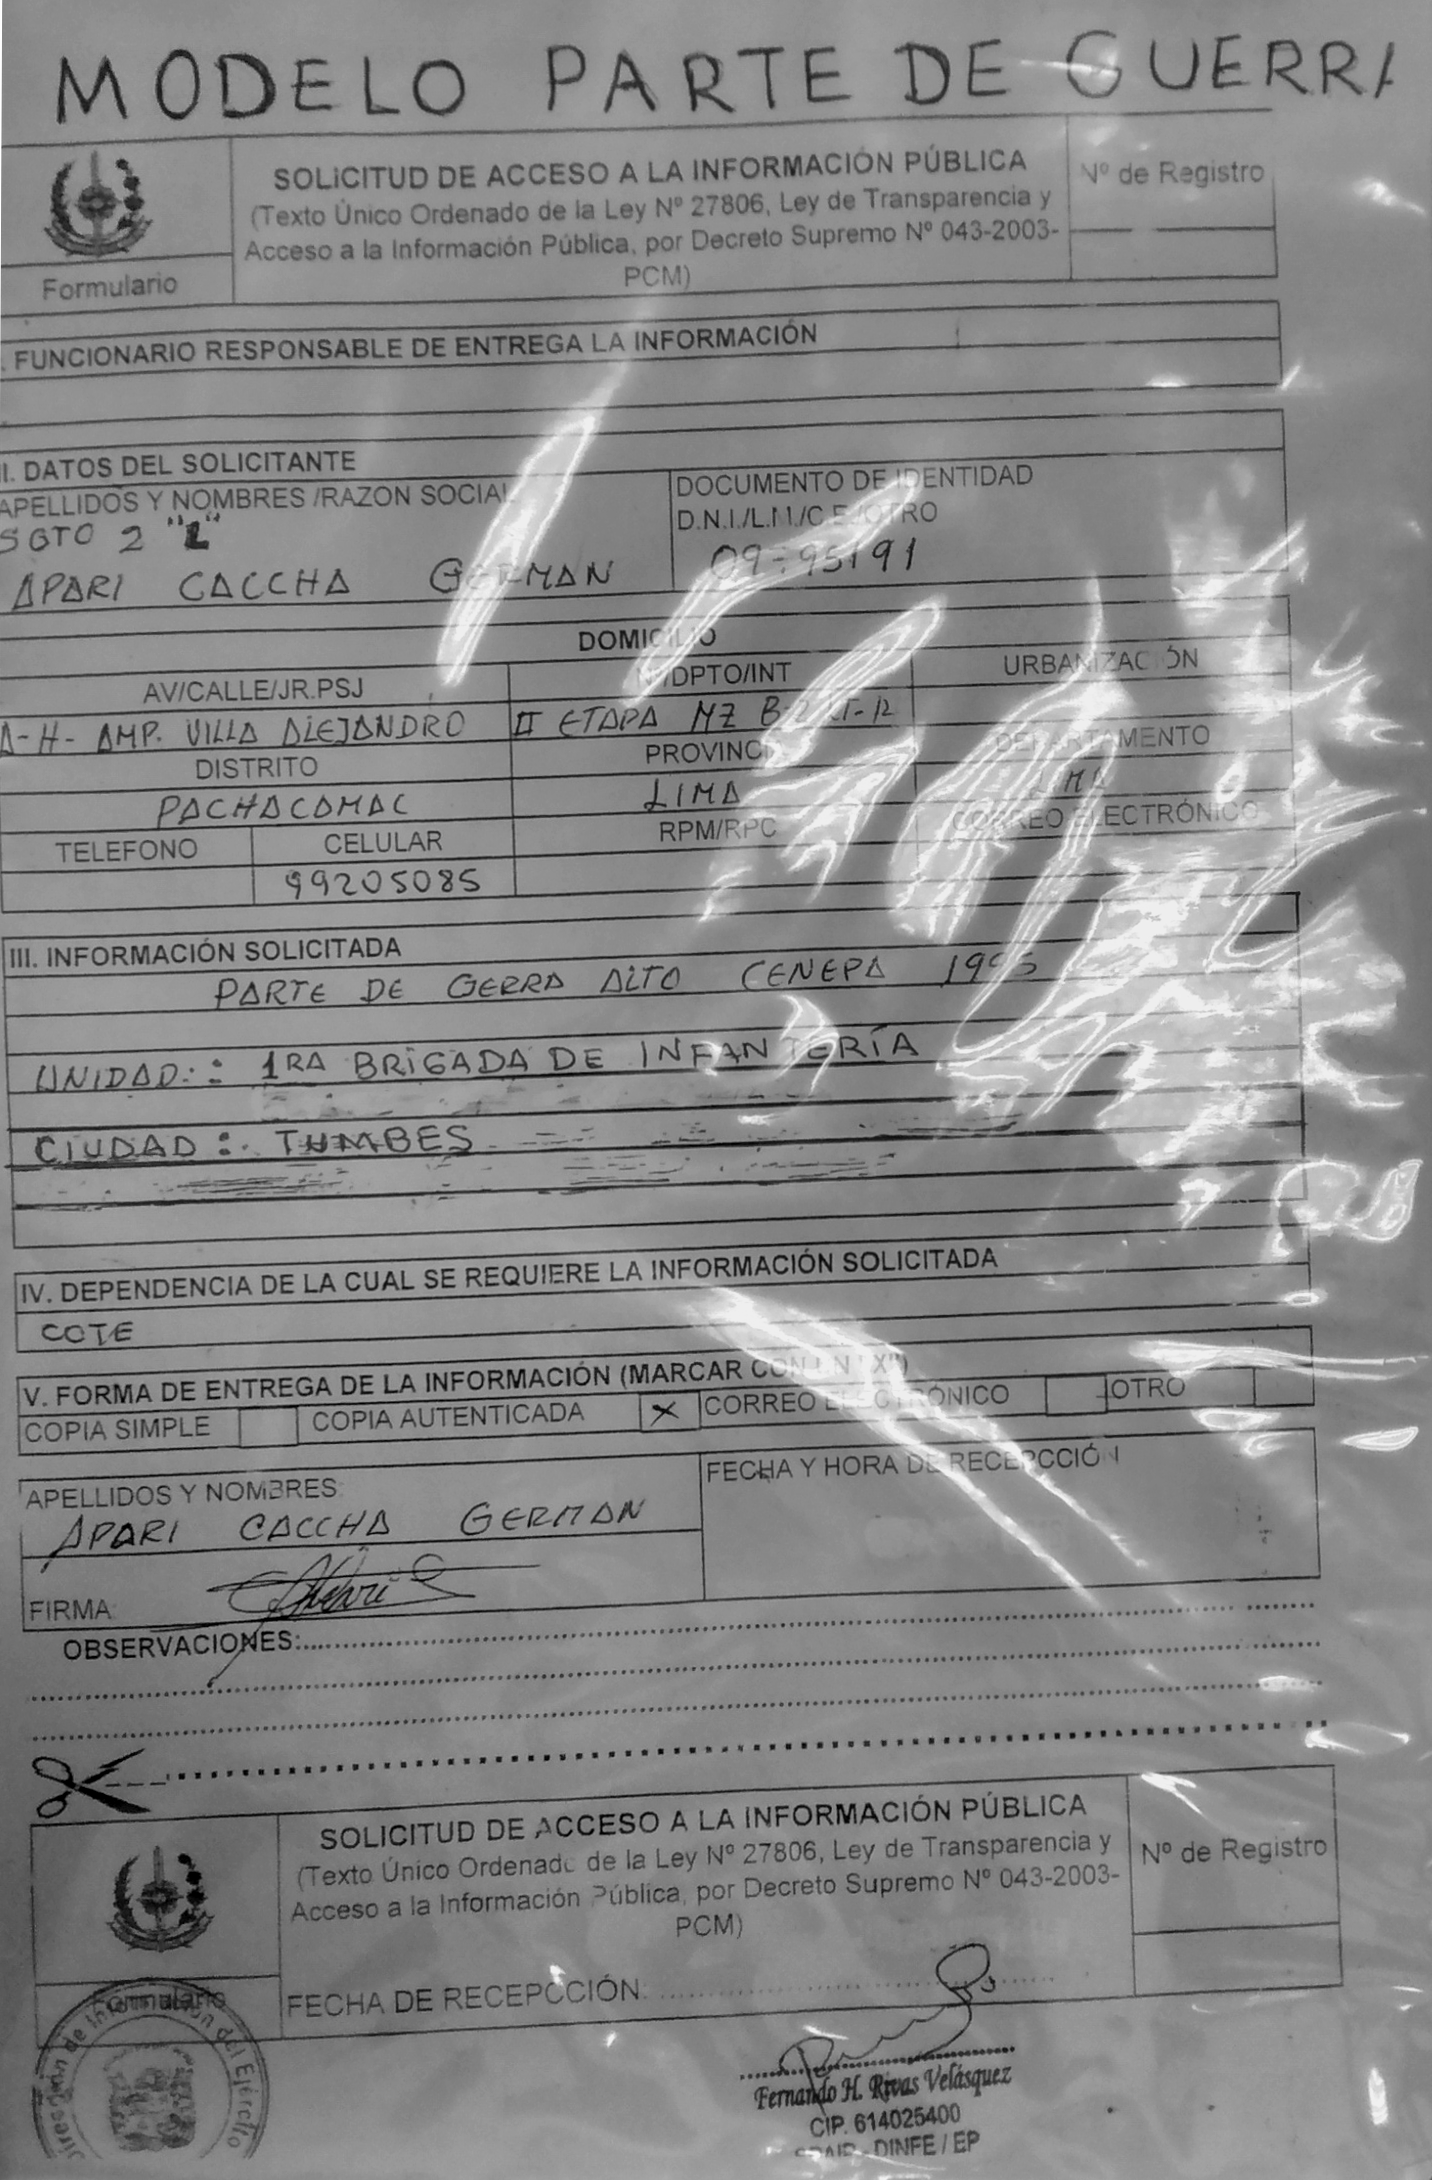 MODELO PARTE DE GUERRA
SOLICITUD DE ACCESO A LA INFORMACIÓN PÚBLICA
(Texto Único Ordenado de la Ley Nº 27806, Ley de Transparencia y
Acceso a la Información Pública, por Decreto Supremo Nº 043-2003-
PCM)
Nº de Registro
Formulario
. FUNCIONARIO RESPONSABLE DE ENTREGA LA INFORMACIÓN
II. DATOS DEL SOLICITANTE
APELLIDOS Y NOMBRES /RAZON SOCIAL
SGTO 2 "L"
APARI CACCHA GERMAN
DOCUMENTO DE IDENTIDAD
D.N.I./L.M./C.E./OTRO
DOMICILIO
AV/CALLE/JR.PSJ
Nº/DPTO/INT
URBANIZACIÓN
A-H- AMP. VILLA ALEJANDRO
II ETAPA MZ B-2 LT-12
DISTRITO
PROVINCIA
DEPARTAMENTO
PACHACAMAC
LIMA
LIMA
TELEFONO
CELULAR
RPM/RPC
CORREO ELECTRÓNICO
99205085
III. INFORMACIÓN SOLICITADA
PARTE DE GERRA ALTO CENEPA 1995
UNIDAD: : 1RA BRIGADA DE INFANTERÍA
CIUDAD : TUMBES
IV. DEPENDENCIA DE LA CUAL SE REQUIERE LA INFORMACIÓN SOLICITADA
COTE
V. FORMA DE ENTREGA DE LA INFORMACIÓN (MARCAR CON UN "X")
COPIA SIMPLE
COPIA AUTENTICADA X
CORREO ELECTRÓNICO
OTRO
APELLIDOS Y NOMBRES:
APARI CACCHA GERMAN
FECHA Y HORA DE RECEPCCIÓN
FIRMA:
OBSERVACIONES:
SOLICITUD DE ACCESO A LA INFORMACIÓN PÚBLICA
(Texto Único Ordenado de la Ley Nº 27806, Ley de Transparencia y
Acceso a la Información Pública, por Decreto Supremo Nº 043-2003-
PCM)
Nº de Registro
Formulario
FECHA DE RECEPCCIÓN:
del Ejército
Fernando H. Rivas Velásquez
CIP. 614025400
DINFE / EP